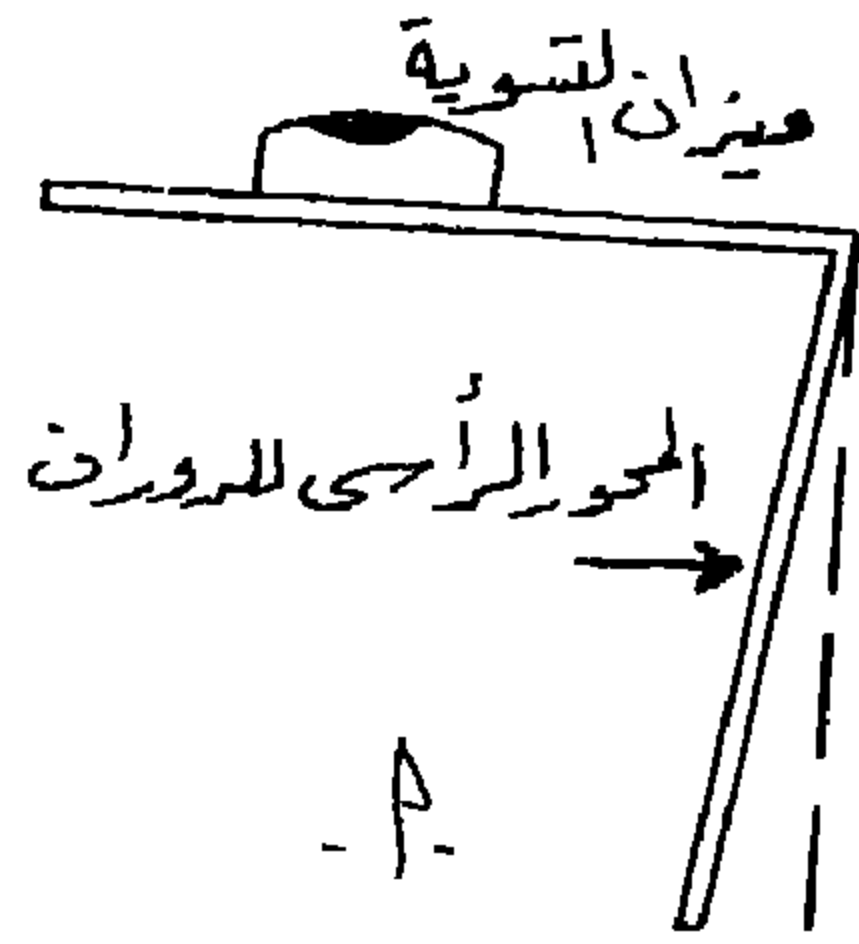 ميزان التسوية
المحور الرأسى للدوران
- م -